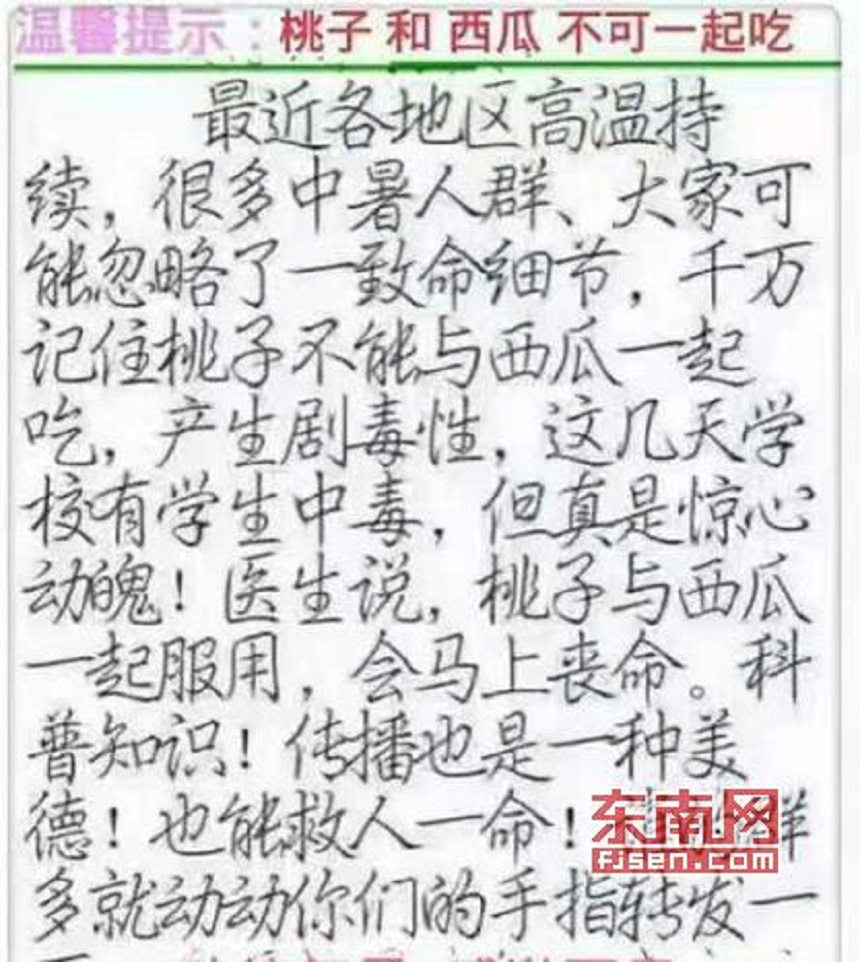 温馨提示：桃子 和 西瓜 不可一起吃
最近各地区高温持
续，很多中暑人群、大家可
能忽略了一致命细节，千万
记住桃子不能与西瓜一起
吃，产生剧毒性，这几天学
校有学生中毒，但真是惊心
动魄！医生说，桃子与西瓜
一起服用，会马上丧命。科
普知识！传播也是一种美
德！也能救人一命！群
东南网
fjsen.com
多就动动你们的手指转发一